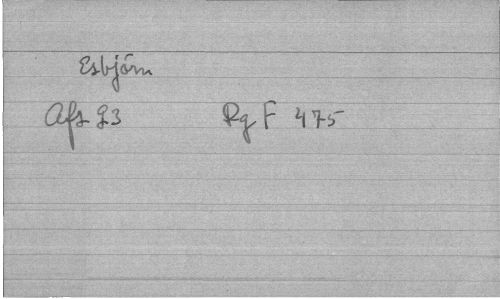 Esbjörn
Afs 93 Rg F 475